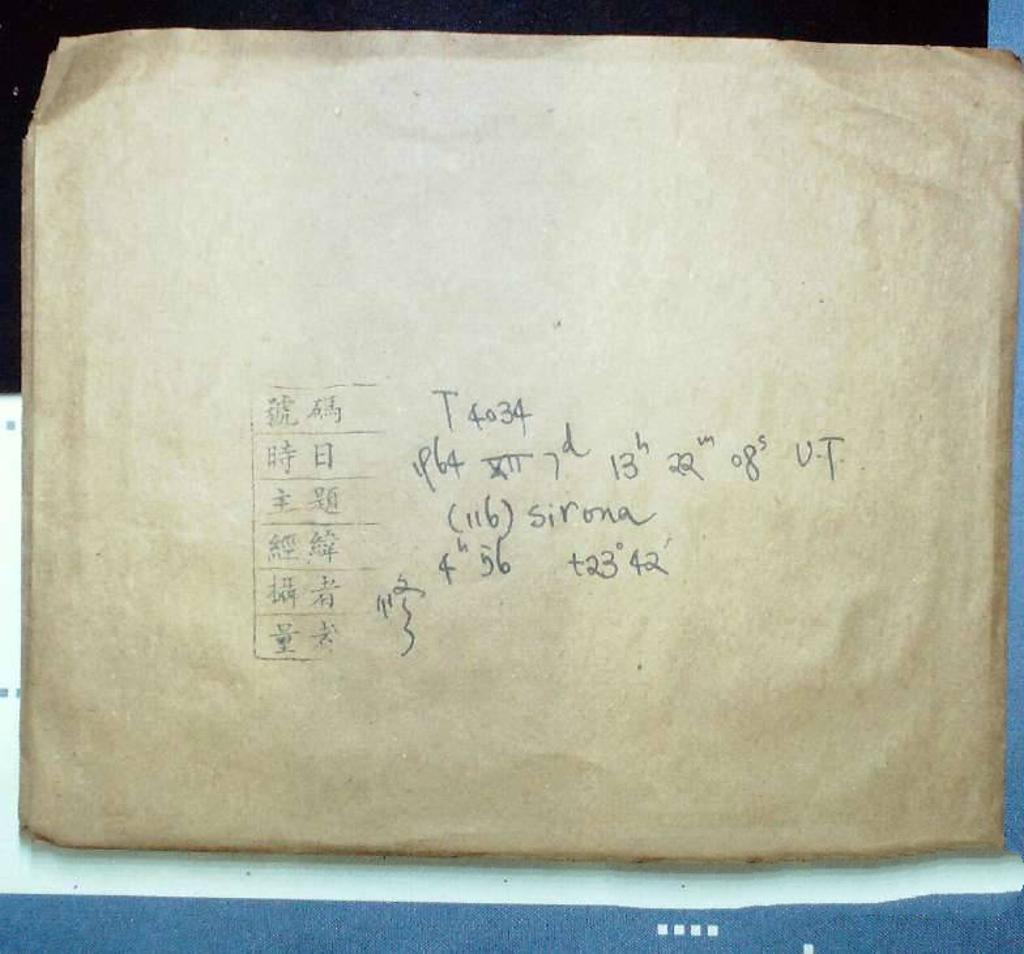 號碼 T 4034
時日 1964 XII 7ᵈ 13ʰ 22ᵐ 08ˢ U.T.
主題 (116) Sirona
經緯 4ʰ 56 +23°42′
攝者
量者